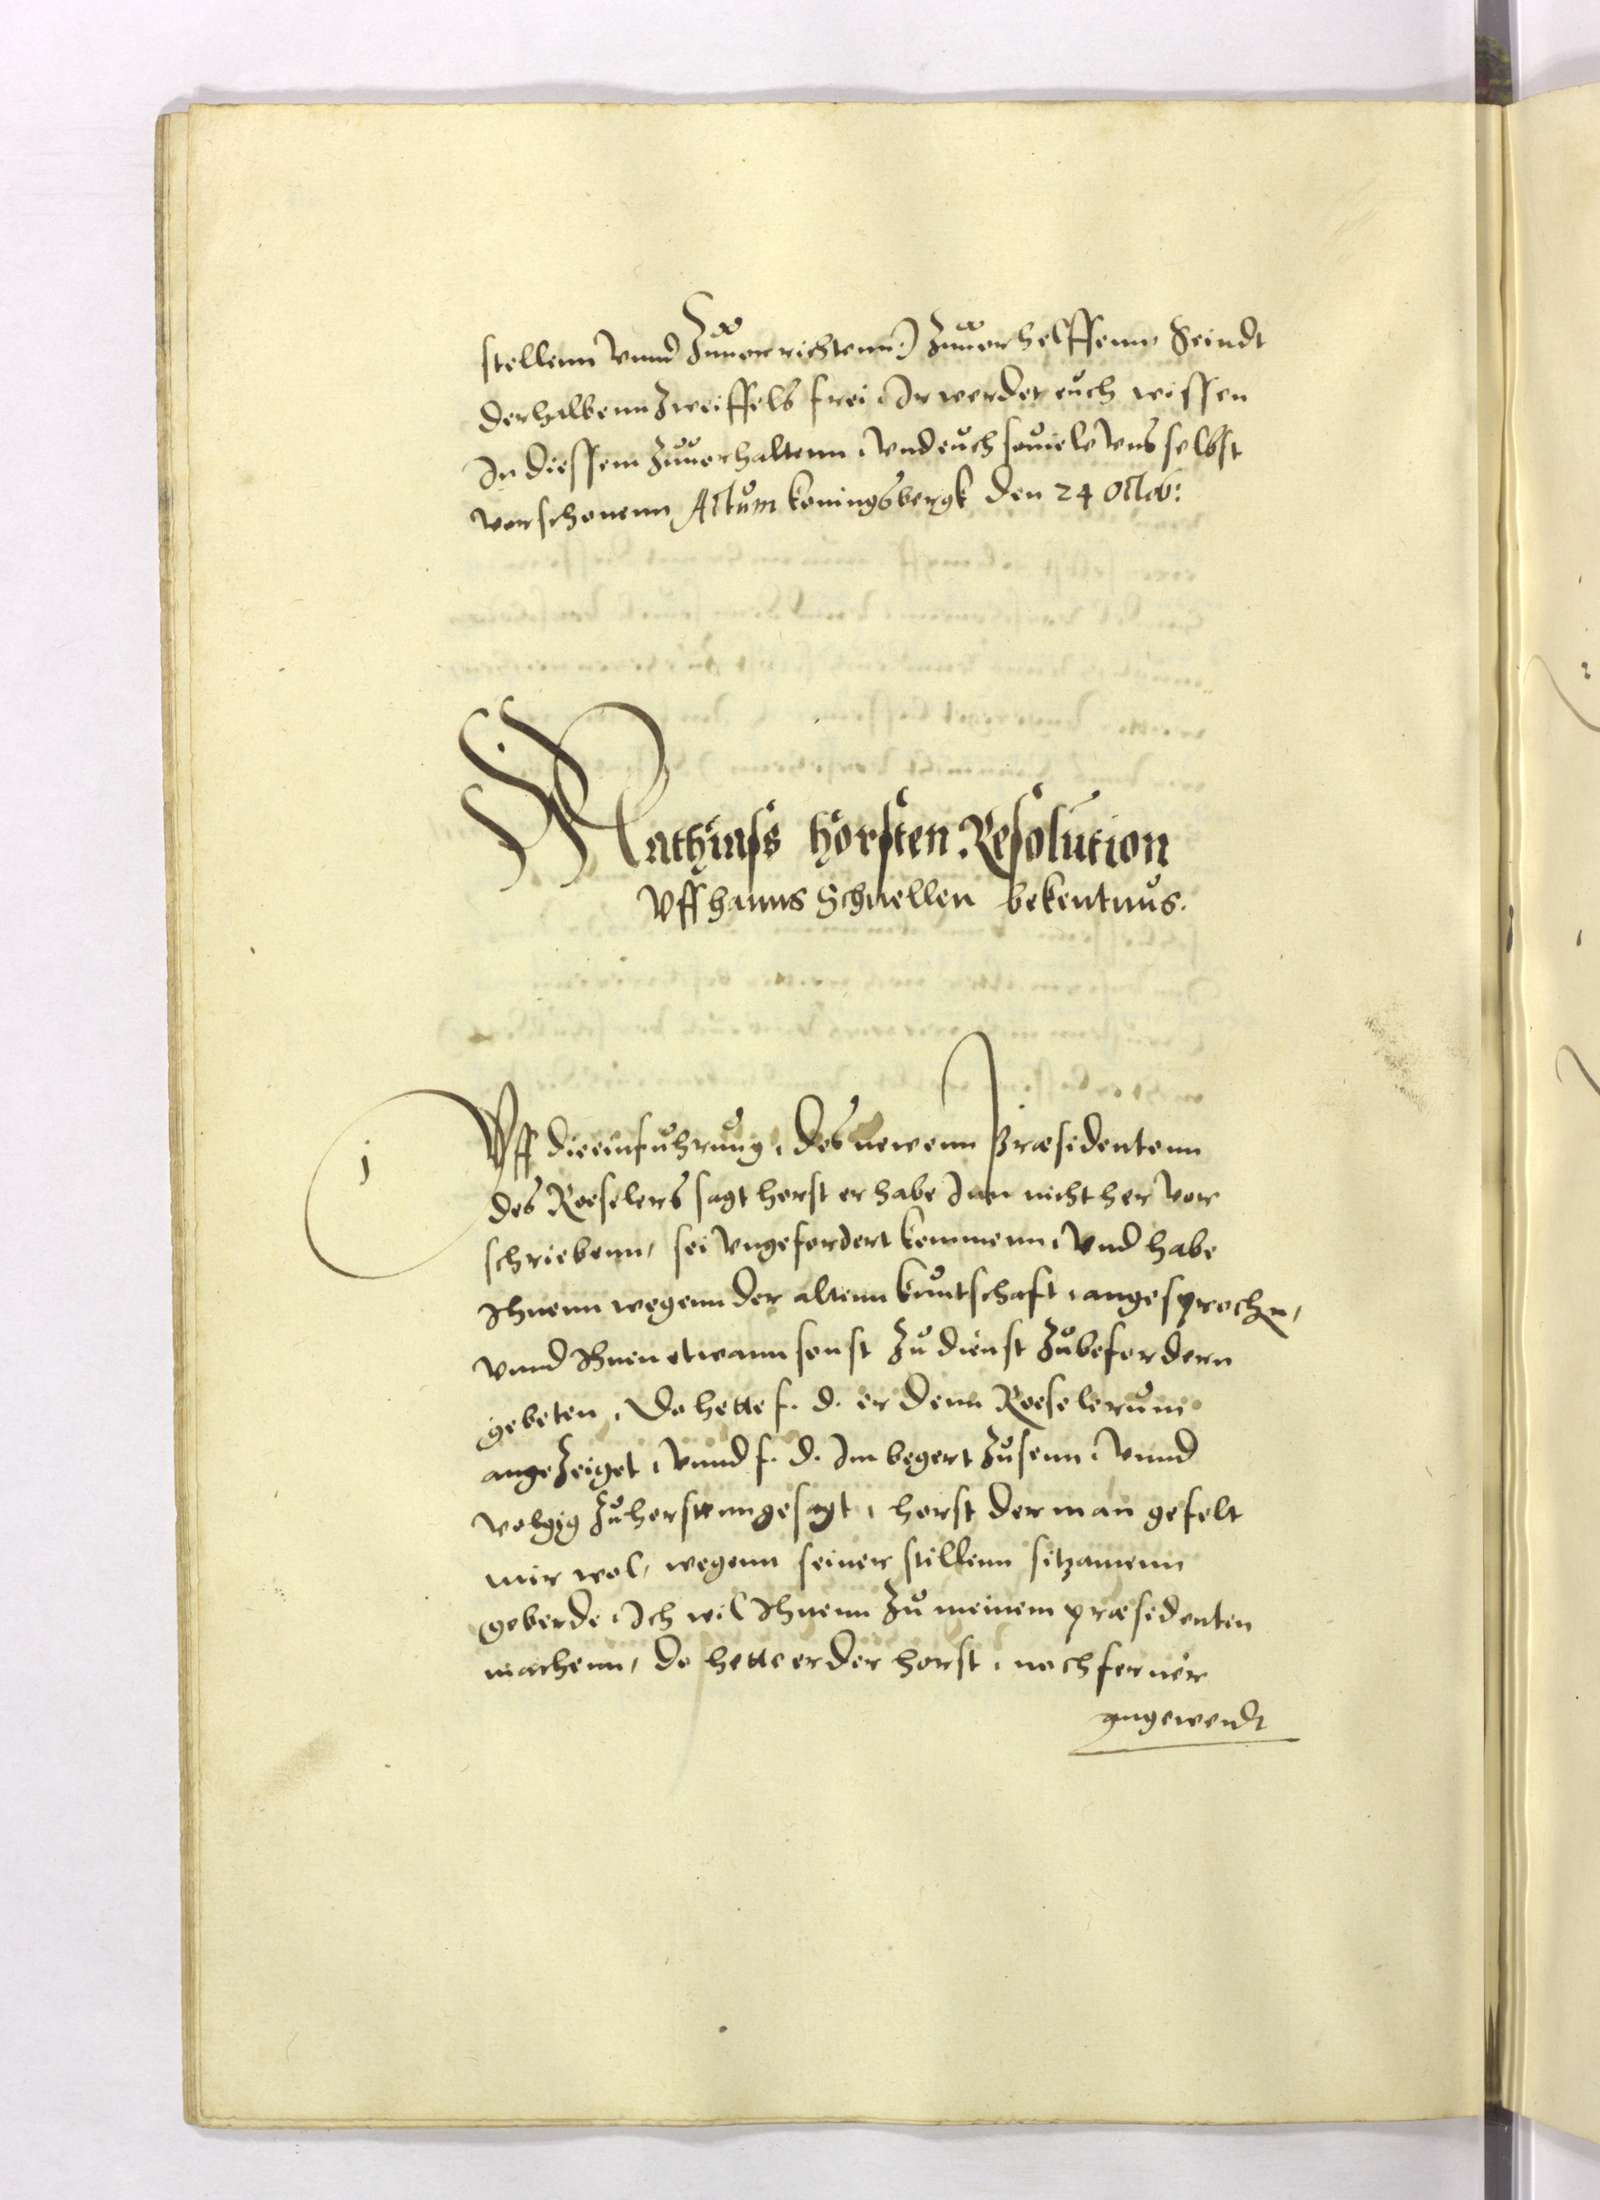 stellenn vnnd Zuuorrichtenn) Zuuorhelffenn Seindt
derhalbenn Zweiffels frei, Ir werdet euch wissen
In diessem Zuuorhaltenn, Vnd euch souiele vns selbst
vorschonenn Actum koningsbergk den 24 Octob:
Mathiass horsten Resolution
Vff hanns Schnellen bekentnus.
j
Vff die einfuhrung, des newenn Præsidentenn
des Roeselers sagt horst er habe Inn nicht her vor
schriebenn, sei vngefordert kommenn, Vnd habe
Ihnenn wegenn der altenn kuntschaft, angesprochn,
vnnd Ihnen etwann sonst Zu dienst Zubefordern
gebeten, Do hette f. d. er denn Roeselerum
angeZeiget, Vnnd f. d. Im begert Zusenn, Vnnd
volgig Zu horstenn gesagt, horst der man gefelt
mir wol, wegenn seiner stillenn sitzamenn
geberde, Ich wil Ihnenn Zu meinem præsidenten
machenn, do hette er der horst, noch ferner
angewendt